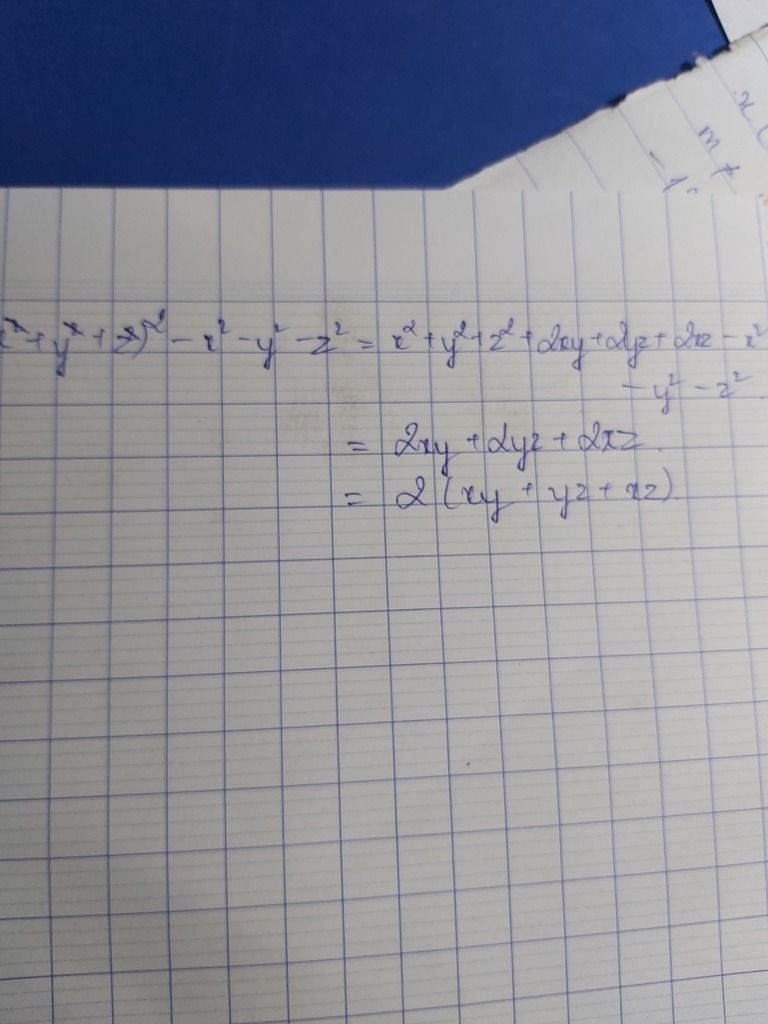 x + y + z)² - x² - y² - z² = x² + y² + z² + 2xy + 2yz + 2xz - x²
- y² - z²
= 2xy + 2yz + 2xz.
= 2 (xy + yz + xz).
x (
m +